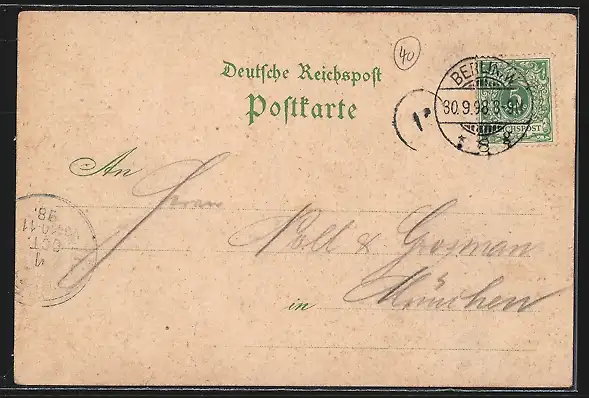 40
Deutsche Reichspost
Postkarte
BERLIN. W.
30.9.98.8-9N
* 8 *
5
REICHSPOST
An Herrn
Noll & Grosman
in München
1
OCT.
98.